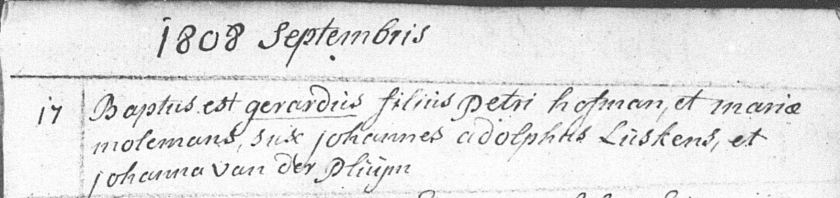 1808 Septembris
17 Baptus est gerardus filius Petri hofman, et mariæ
molemans, sux johannes adolphus Luskens, et
johanna van der Pluijm